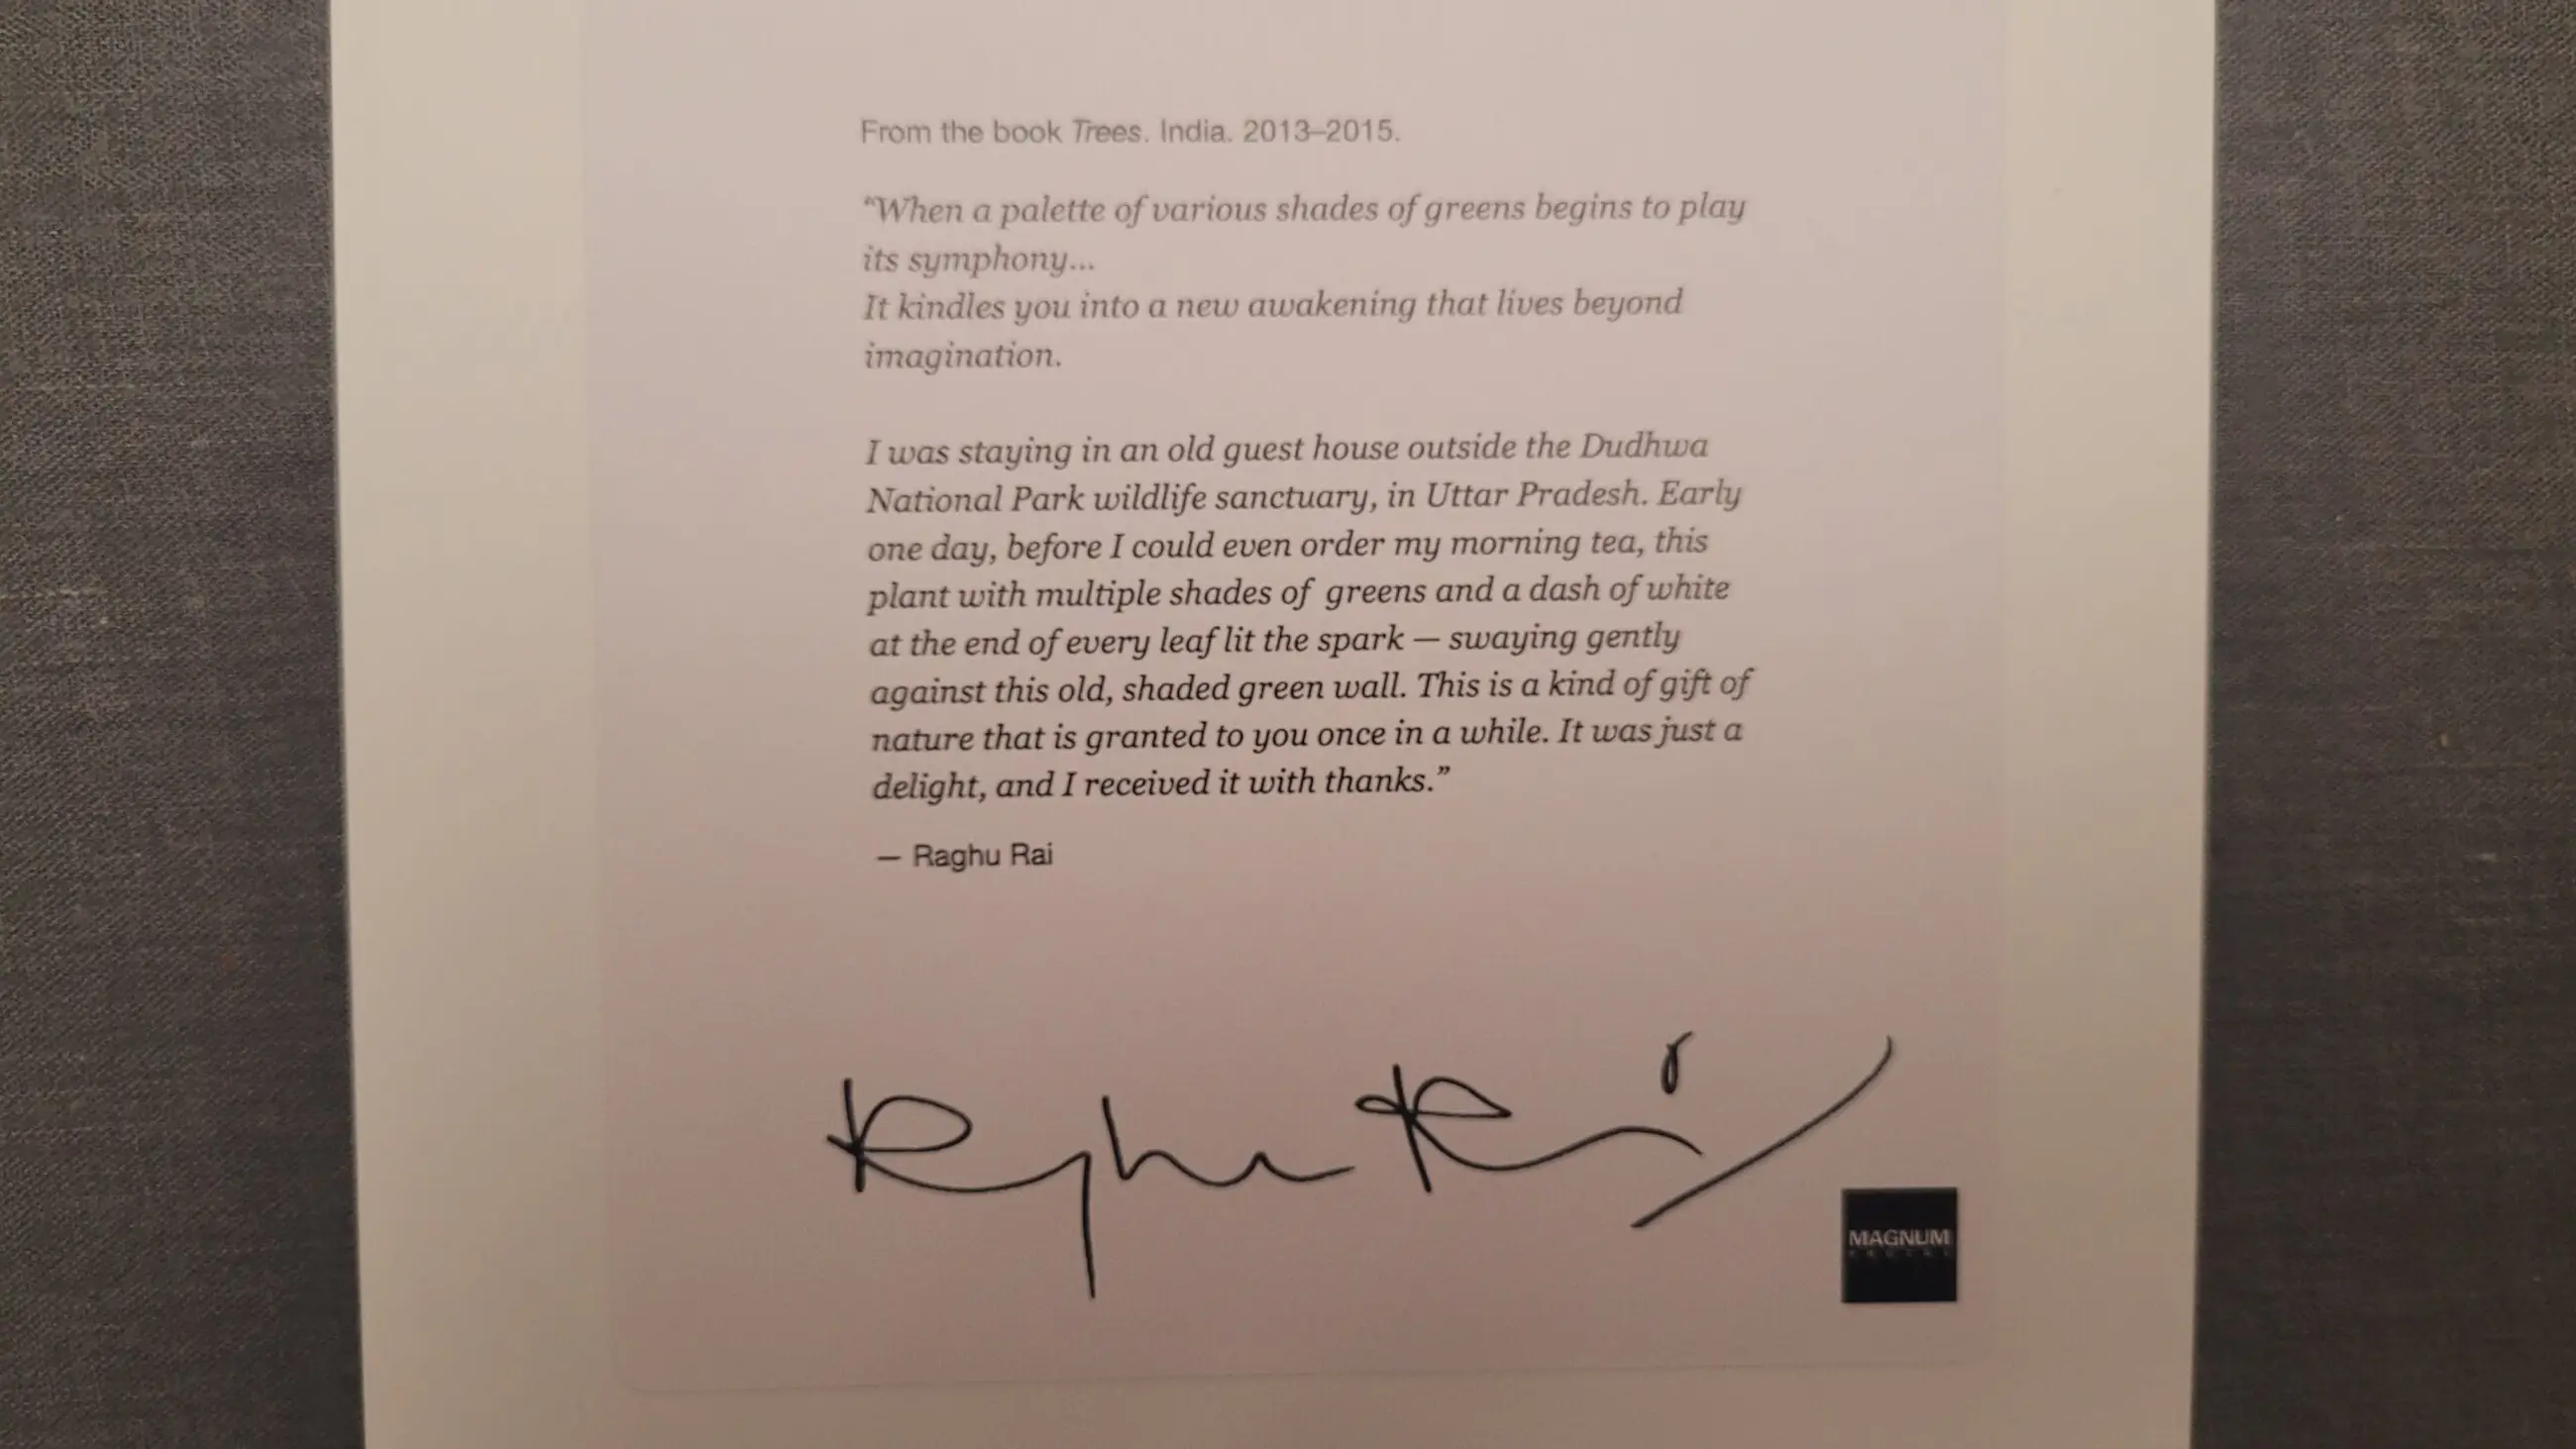 From the book Trees. India. 2013–2015.
“When a palette of various shades of greens begins to play
its symphony...
It kindles you into a new awakening that lives beyond
imagination.
I was staying in an old guest house outside the Dudhwa
National Park wildlife sanctuary, in Uttar Pradesh. Early
one day, before I could even order my morning tea, this
plant with multiple shades of greens and a dash of white
at the end of every leaf lit the spark — swaying gently
against this old, shaded green wall. This is a kind of gift of
nature that is granted to you once in a while. It was just a
delight, and I received it with thanks.”
— Raghu Rai
Raghu Rai
MAGNUM